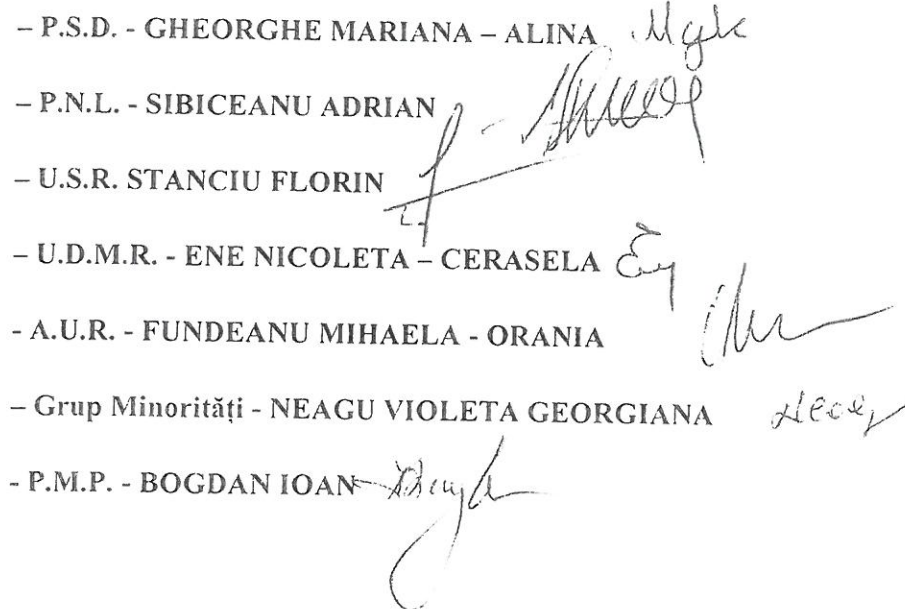 – P.S.D. - GHEORGHE MARIANA – ALINA
– P.N.L. - SIBICEANU ADRIAN
– U.S.R. STANCIU FLORIN
– U.D.M.R. - ENE NICOLETA – CERASELA
- A.U.R. - FUNDEANU MIHAELA - ORANIA
– Grup Minorități - NEAGU VIOLETA GEORGIANA
- P.M.P. - BOGDAN IOAN